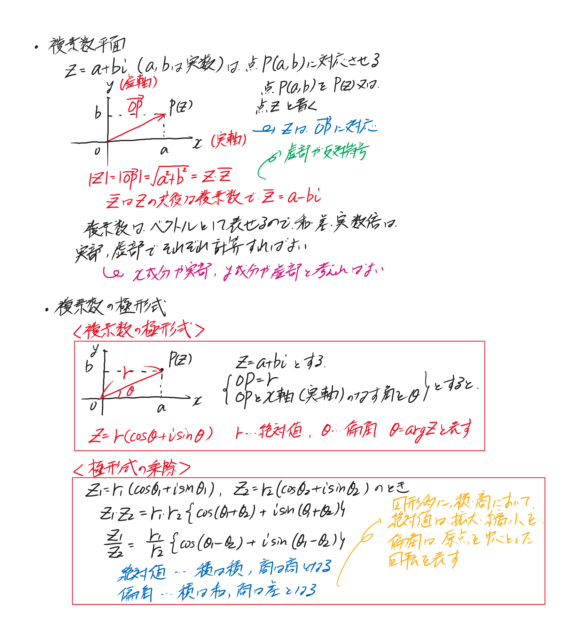 ・複素数平面
z=a+bi (a,bは実数)は、点P(a,b)に対応させる
y (虚軸)
点P(a,b)をP(z)又は、
点zと書く
b OP P(z)
→zは、OPに対応
O a x (実軸)
虚部が反対符号
|z|=|OP|=√a²+b²=z・z̄
z̄はzの共役な複素数で z̄=a-bi
複素数は、ベクトルとして表せるので、和・差・実数倍は、
実部、虚部でそれぞれ計算すればよい
x成分が実部、y成分が虚部と考えればよい
・複素数の極形式
<複素数の極形式>
y
b r P(z)
z=a+biとする.
OP=r
OPとx軸(実軸)のなす角をθ とすると、
θ
O a x
z=r(cosθ+isinθ) r…絶対値、θ…偏角 θ=argzと表す
<極形式の乗除>
z₁=r₁(cosθ₁+isinθ₁), z₂=r₂(cosθ₂+isinθ₂)のとき
z₁z₂=r₁r₂{cos(θ₁+θ₂)+isin(θ₁+θ₂)}
z₁/z₂=r₁/r₂{cos(θ₁-θ₂)+isin(θ₁-θ₂)}
絶対値…積は積、商は商になる
偏角…積は和、商は差となる
図形的に、積・商において、
絶対値は、拡大・縮小を、
偏角は、原点を中心とした
回転を表す